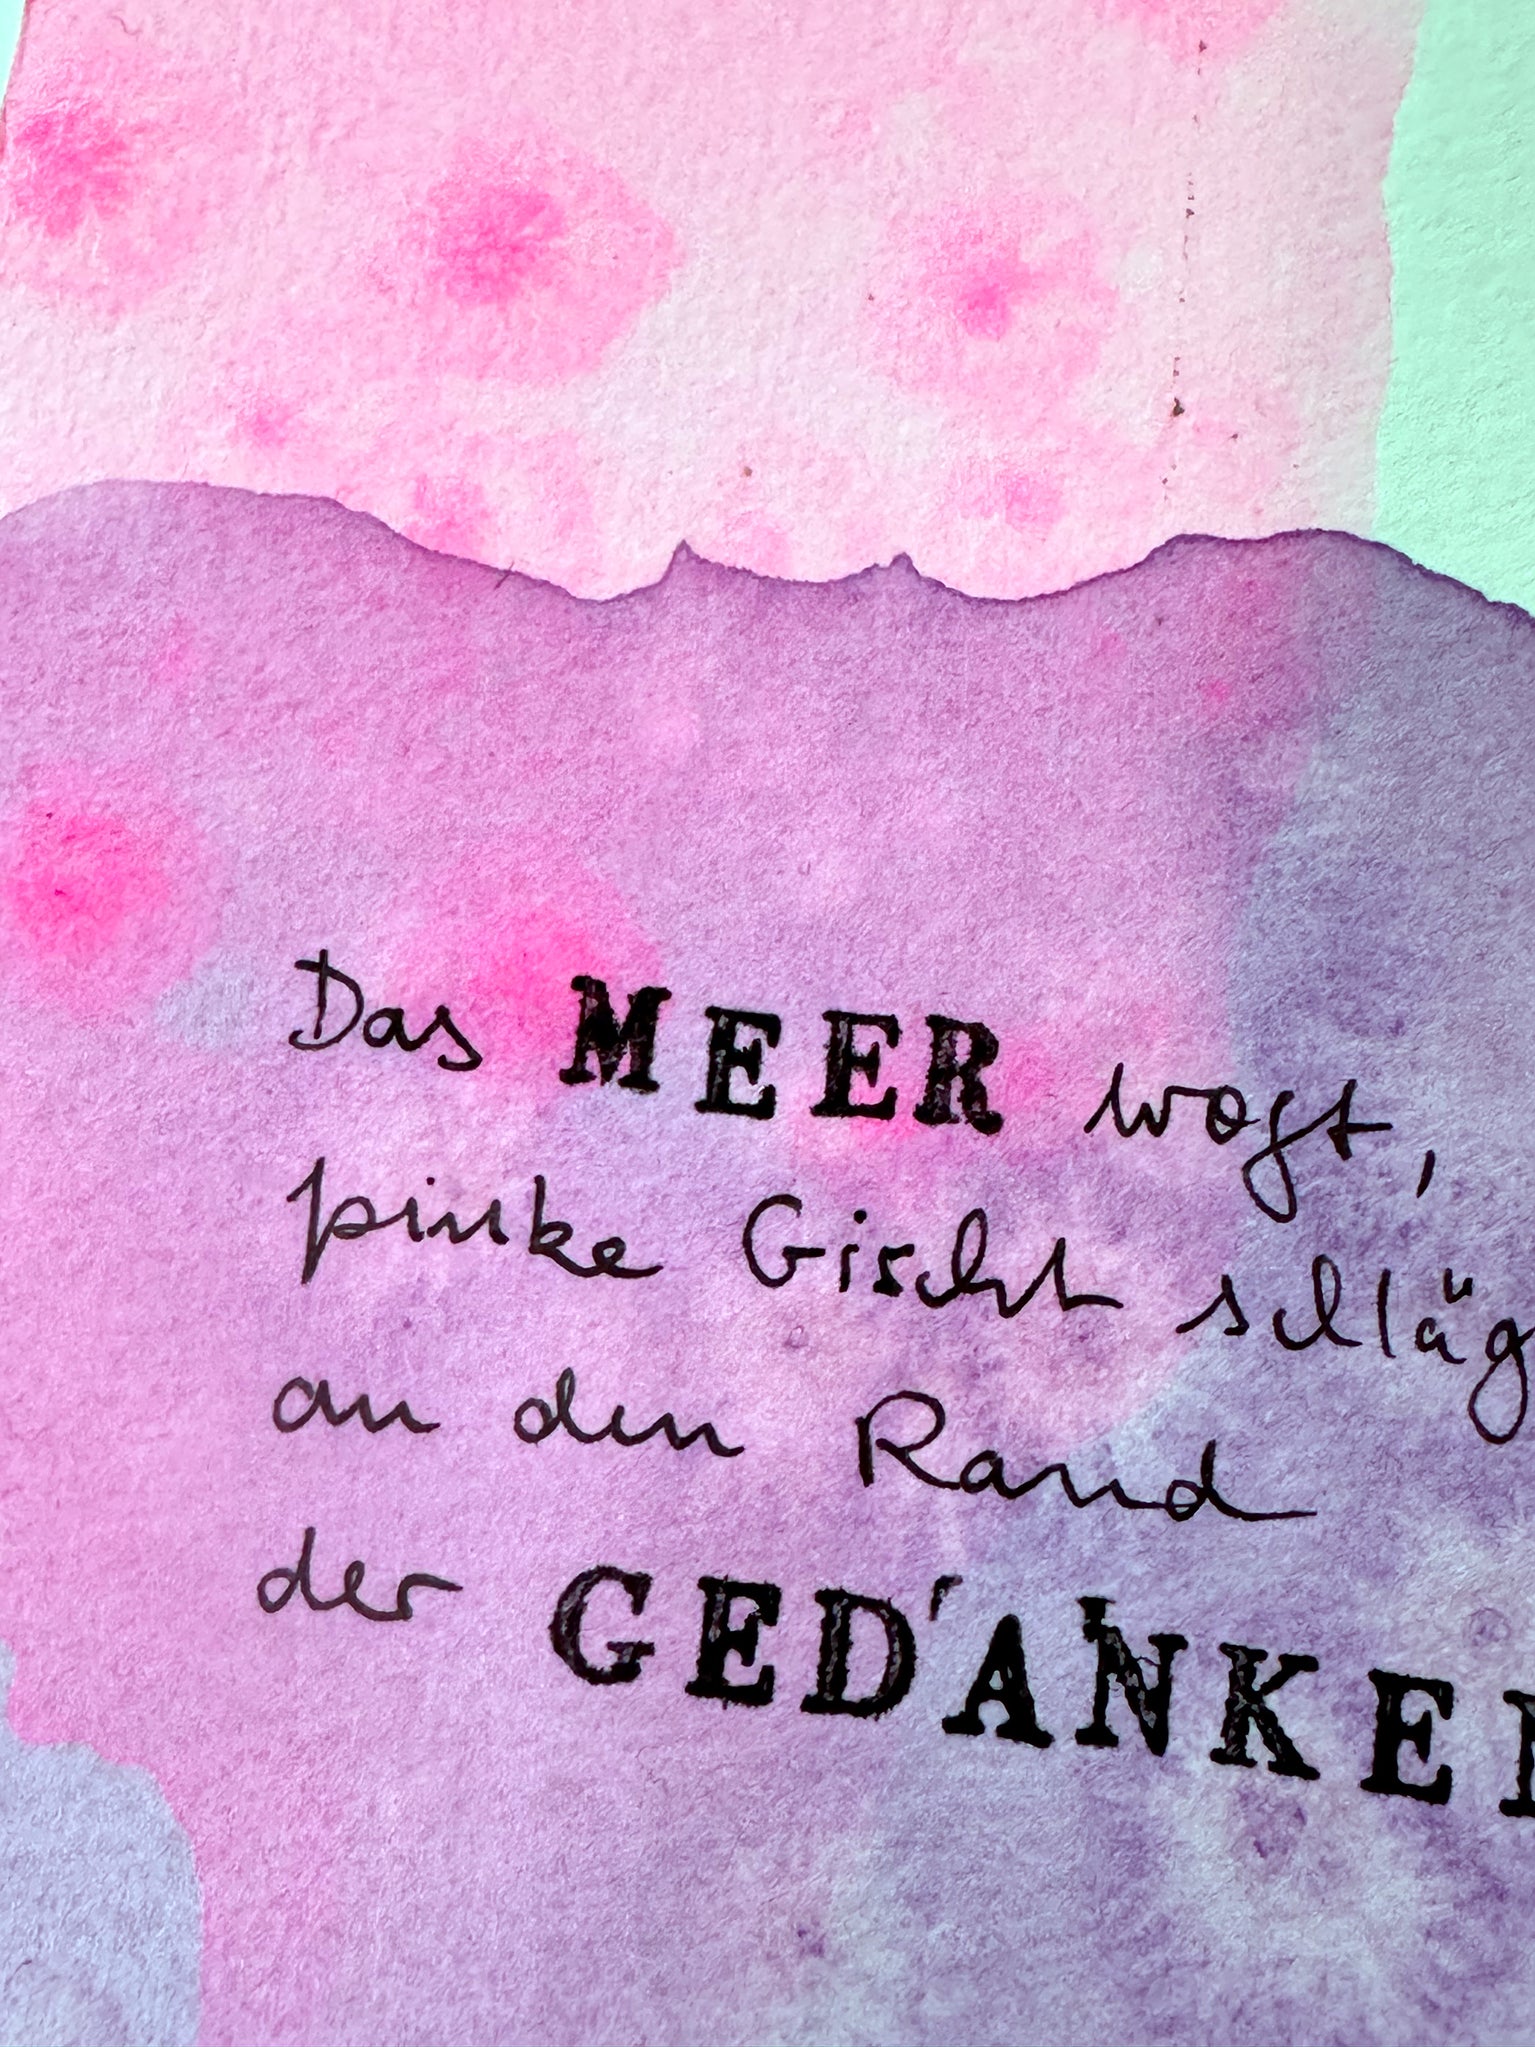 Das MEER wogt,
pinke Gischt schläg
an den Rand
der GEDANKEN